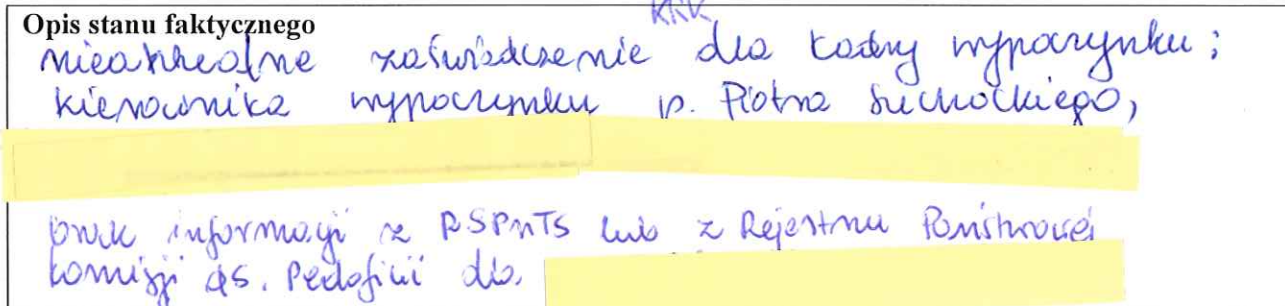 Opis stanu faktycznego
KRK
nieaktualne zaświadczenie dla kadry wypoczynku;
kierownika wypoczynku p. Piotra Suchockiego,
brak informacji z RSPnTS lub z Rejestru Państwowej
Komisji ds. Pedofilii dla